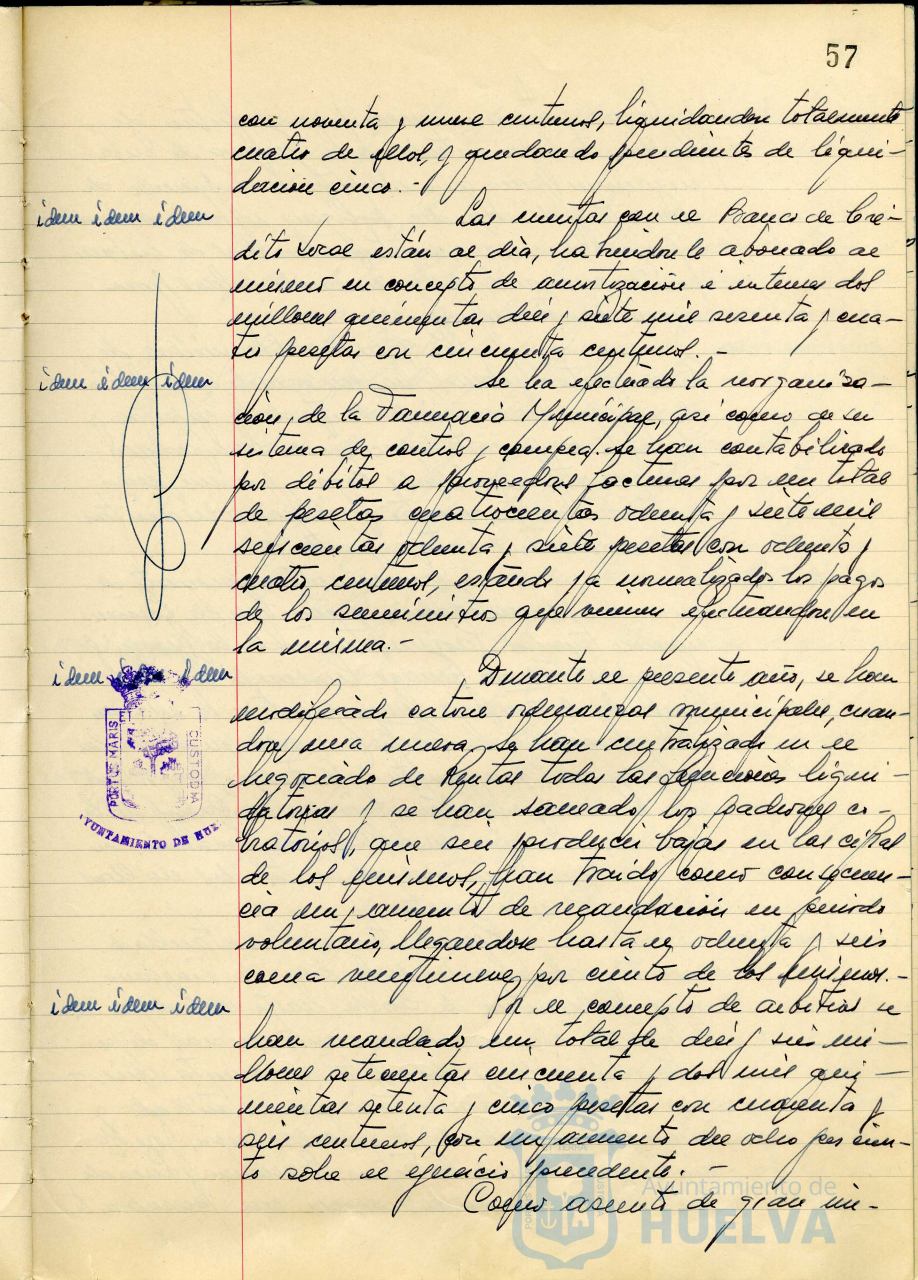 57
con noventa y nueve centimos, liquidandose totalmente
cuatro de ellos, y quedando pendientes de liqui-
dación cinco.-
idem idem idem
Las cuentas con el Banco de Cré-
dito Local están al dia, habiendosele abonado al
mismo en concepto de amortización e intereses dos
millones quinientas diez y siete mil sesenta y cua-
tro pesetas con cincuenta centimos.-
idem idem idem
Se ha efectuado la reorganiza-
ción, de la Farmacia Municipal, asi como de su
sistema de control y compra. Se han contabilizado
por débitos a proveedores facturas por un total
de pesetas cuatrocientas ochenta y siete mil
seiscientas ochenta y siete pesetas con ochenta y
cuatro centimos, estando ya normalizados los pagos
de los suministros que vienen efectuandose en
la misma.-
idem idem idem
Durante el presente año, se han
modificado catorce ordenanzas municipales, crean-
dose una nueva, se han centralizado en el
Negociado de Rentas todas las funciones liqui-
datorias y se han saneado los padrones co-
bratorios, que sin producir bajas en las cifras
de los mismos, han traido como consecuen-
cia un aumento de recaudación en periodo
voluntario, llegandose hasta el ochenta y seis
coma veintinueve por ciento de los mismos.-
idem idem idem
Por el concepto de arbitrios se
han recaudado un total de diez y seis mi-
llones setecientas cincuenta y dos mil qui-
nientas setenta y cinco pesetas con cuarenta y
seis centimos, con un aumento del ocho por cien-
to sobre el ejercicio precedente.-
Como asunto de gran im-
PORTUS MARIS ET
CUSTODIA
AYUNTAMIENTO DE HUE
Ayuntamiento de
HUELVA